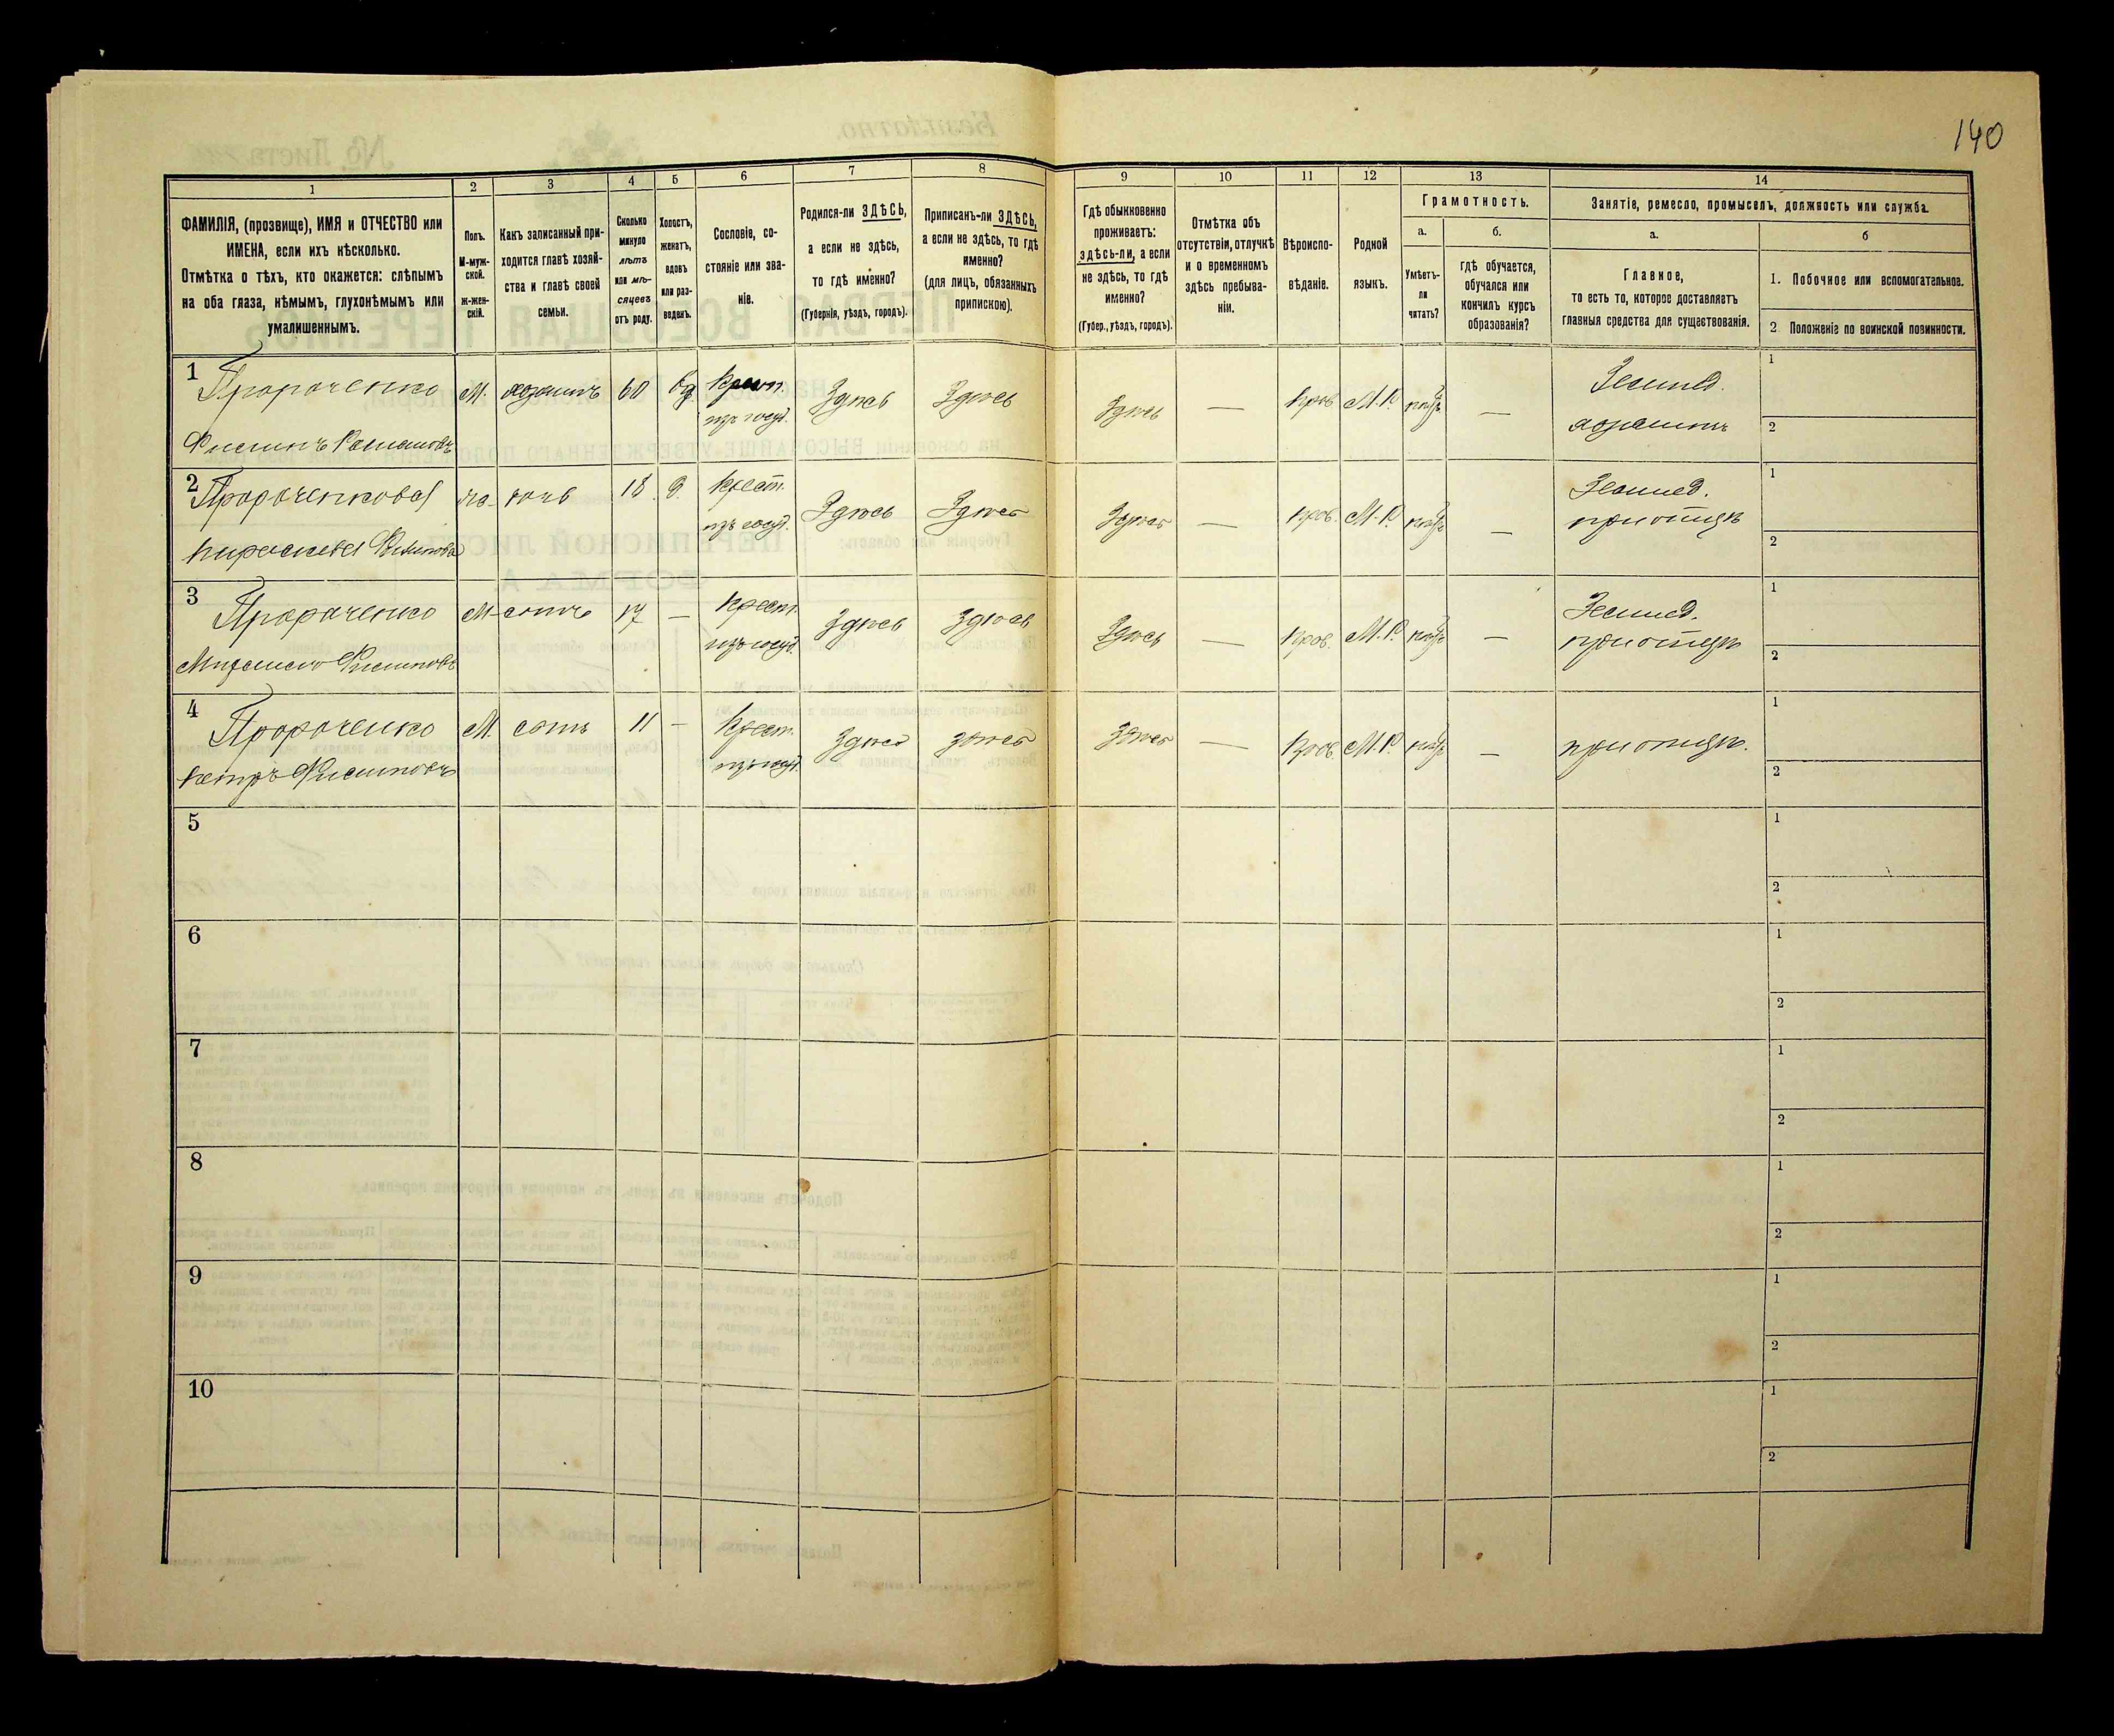 140
1
2
3
4
5
6
7
8
9
10
11
12
13
14
ФАМИЛІЯ, (прозвище), ИМЯ и ОТЧЕСТВО или
ИМЕНА, если ихъ нѣсколько.
Отмѣтка о тѣхъ, кто окажется: слѣпымъ
на оба глаза, нѣмымъ, глухонѣмымъ или
умалишеннымъ.
Полъ.
М-муж-
ской.
ж-жен-
скій.
Какъ записанный при-
ходится главѣ хозяй-
ства и главѣ своей
семьи.
Сколько
минуло
лѣтъ
или мѣ-
сяцевъ
отъ роду.
Холостъ,
женатъ,
вдовъ
или раз-
веденъ.
Сословіе, со-
стояніе или зва-
ніе.
Родился-ли ЗДѢСЬ,
а если не здѣсь,
то гдѣ именно?
(Губернія, уѣздъ, городъ).
Приписанъ-ли ЗДѢСЬ,
а если не здѣсь, то гдѣ
именно?
(для лицъ, обязанныхъ
припискою).
Гдѣ обыкновенно
проживаетъ:
здѣсь-ли, а если
не здѣсь, то гдѣ
именно?
(Губер., уѣздъ, городъ).
Отмѣтка объ
отсутствіи, отлучкѣ
и о временномъ
здѣсь пребыва-
ніи.
Вѣроиспо-
вѣданіе.
Родной
языкъ.
Грамотность.
а.
Умѣетъ-
ли
читать?
б.
гдѣ обучается,
обучался или
кончилъ курсъ
образованія?
Занятіе, ремесло, промыселъ, должность или служба.
а.
Главное,
то есть то, которое доставляетъ
главныя средства для существованія.
б
1. Побочное или вспомогательное.
2. Положеніе по воинской повинности.
1 Пророченко М. хозяинъ 60 вд. Крест. Здѣсь Здѣсь Здѣсь — М.Р. — Землед. 1
изъ госуд. хозяинъ 2
2 Пророченкова дочь 18 Крест. Здѣсь Здѣсь Здѣсь — М.Р. — Землед. 1
изъ госуд. при отцѣ 2
3 Пророченко М сынъ 17 — Крест. Здѣсь Здѣсь Здѣсь — М.Р. — Землед. 1
изъ госуд. при отцѣ 2
4 Пророченко М. сынъ 11 — Крест. Здѣсь Здѣсь Здѣсь — М.Р. — при отцѣ. 1
Петръ изъ госуд. 2
5 1
2
6 1
2
7 1
2
8 1
2
9 1
2
10 1
2